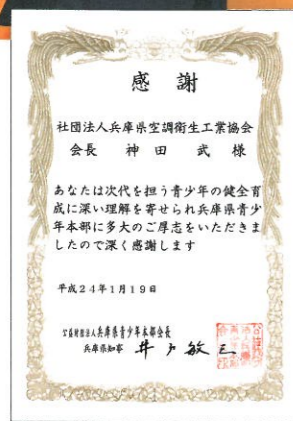 感謝
社団法人兵庫県空調衛生工業協会
会長　神田　武　様
あなたは次代を担う青少年の健全育
成に深い理解を寄せられ兵庫県青少
年本部に多大のご厚志をいただきま
したので深く感謝します
平成24年1月19日
公益財団法人兵庫県青少年本部会長
兵庫県知事　井戸敏三